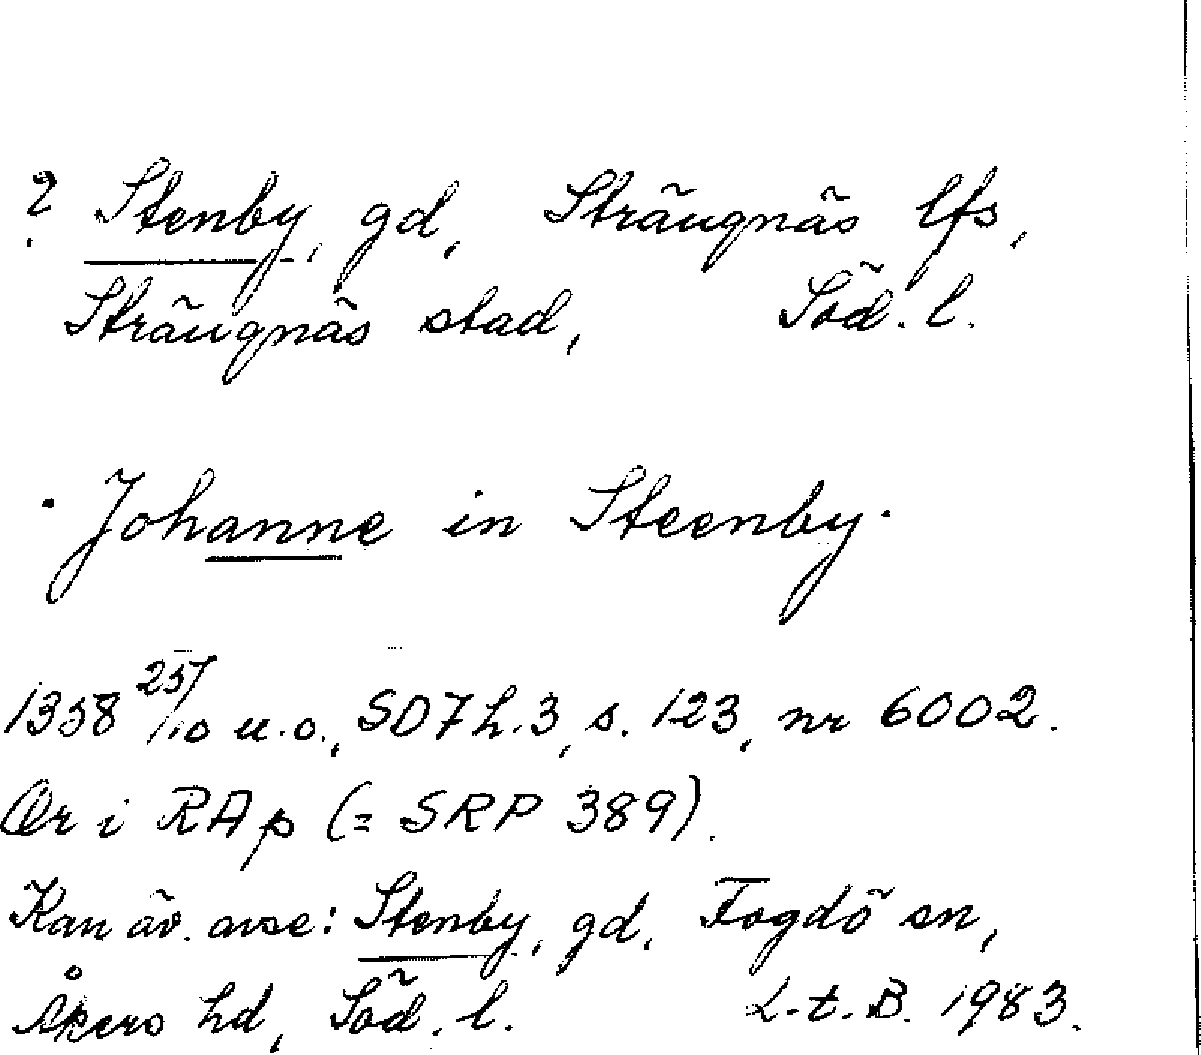 ? Stenby, gd, Strängnäs lfs,
Strängnäs stad, Söd. l.
· Johanne in Steenby ·
1358 25/10 u.o., SD7 h.3, s. 123, nr 6002.
Or i RAp (= SRP 389).
Kan äv. avse: Stenby, gd, Fogdö sn,
Åkers hd, Söd. l. L-t. B. 1983.